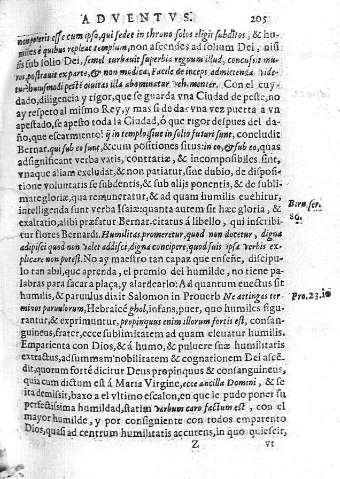 ADVENTVS. 205
non poteris esse cum ipso, qui sedet in throno solos eligit subditos, & hu-
miles é quibus repleat templum, non ascendes ad solium Dei, nisi
sis sub solio Dei, semel turbauit superbis regnum illud, concussit mu-
ros, postrauit ex parte, & non modica, Facile de inceps admittenza
pesti ciuitas illa abominatur vehementer. Con el cuy-
dado, diligencia y rigor, que se guarda vna Ciudad de peste, no
ay respeto al mismo Rey, y mas si de da vna vez puerta a vn
apestado, se apesto toda la Ciudad, ó que rigor despues del da-
ño, que escarmiento! q̃ in templo, siue in solio futuri sunt, concludit
Bernar. qui sub eo sunt, & cum positiones situs: in eo, & sub eo, quas
adsignificant verba vatis, contrariæ, & incomposibiles sint,
vnaque aliam excludat, & non patiatur, sine dubio, de dispositio
voluntatis se subdentis, & sub alijs ponentis, & de subli-
mate gloriæ, qua remuneratur, & ad quam humilis euehitur,
intelligenda sunt verba Isaiæ: quanta autem sit hæc gloria, &
exaltatio, alibi præfatur Bernar. citatus á libello, qui inscribi-
tur flores Bernardi. Humilitas prometetur, quod non docetur, digna
adipisci quod non valet addisci, digna concipere, quod suis ipsa verbis ex-
plicare non potest. No ay maestro tan capaz que enseñe, discipu-
lo tan abil, que aprenda, el premio del humilde, no tiene pa-
labras para sacar a plaça, y alardearlo: Ad quantum euectus sit
humilis, & paruulus dixit Salomon in Prouerb Ne attingas ter-
minos paruulorum, Hebraicé ghol, infans, puer, quo humiles figu-
rantur, & exprimuntur, propinquus enim illorum fortis est, consan-
guineus, frater, ecce sublimitatem ad quam euehatur humilis.
Emparienta con Dios, & á humo, & puluere suæ humilitatis
extractus, ad summam nobilitatem & cognationem Dei ascē-
dit, quorum forté dicitur Deus propinquus & consanguineus,
quia cum dictum est á Maria Virgine, ecce ancilla Domini, & se
ita demissit, baxo a el vltimo escalon, en que le pudo poner su
perfectissima humildad, statim verbum caro factum est, con el
mayor humilde, y por consiguiente con todos emparento
Dios, quasi ad centrum humilitatis accurrens, in quo quiescir,
Z vt
Bern. ser.
86.
Pro. 23. 10